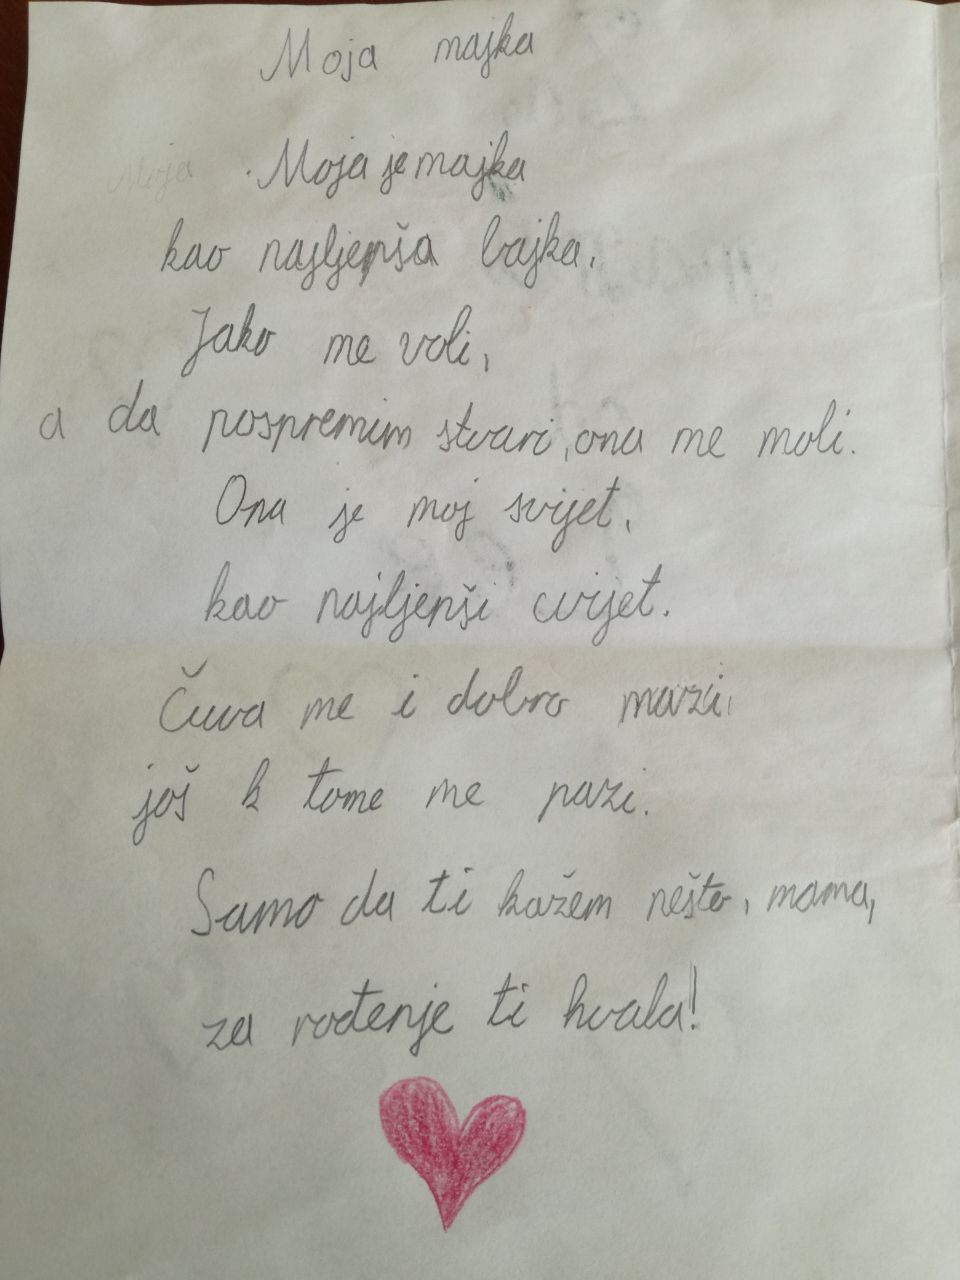 Moja majka
Moja Moja je majka
kao najljepša bajka.
Jako me voli,
a da pospremim stvari, ona me moli.
Ona je moj svijet,
kao najljepši cvijet.
Čuva me i dobro mazi,
još k tome me pazi.
Samo da ti kažem nešto, mama,
za rođenje ti hvala!